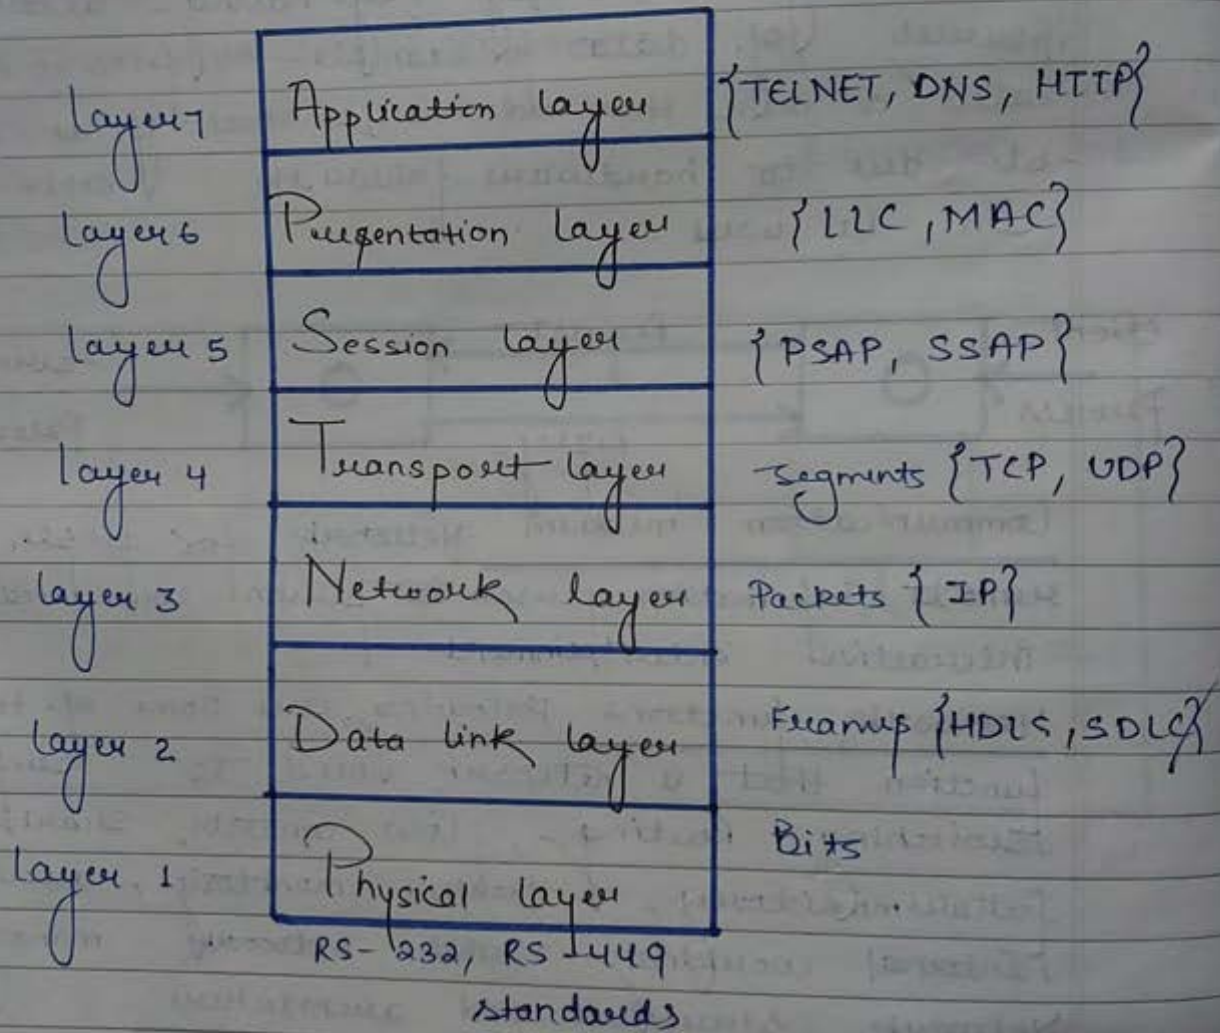 Layer 7 Application layer {TELNET, DNS, HTTP}
Layer 6 Presentation layer {LLC, MAC}
Layer 5 Session layer {PSAP, SSAP}
Layer 4 Transport layer Segments {TCP, UDP}
Layer 3 Network layer Packets {IP}
Layer 2 Data link layer {HDLS, SDLC}
Bits
Layer 1 Physical layer
RS-232, RS-449
standards